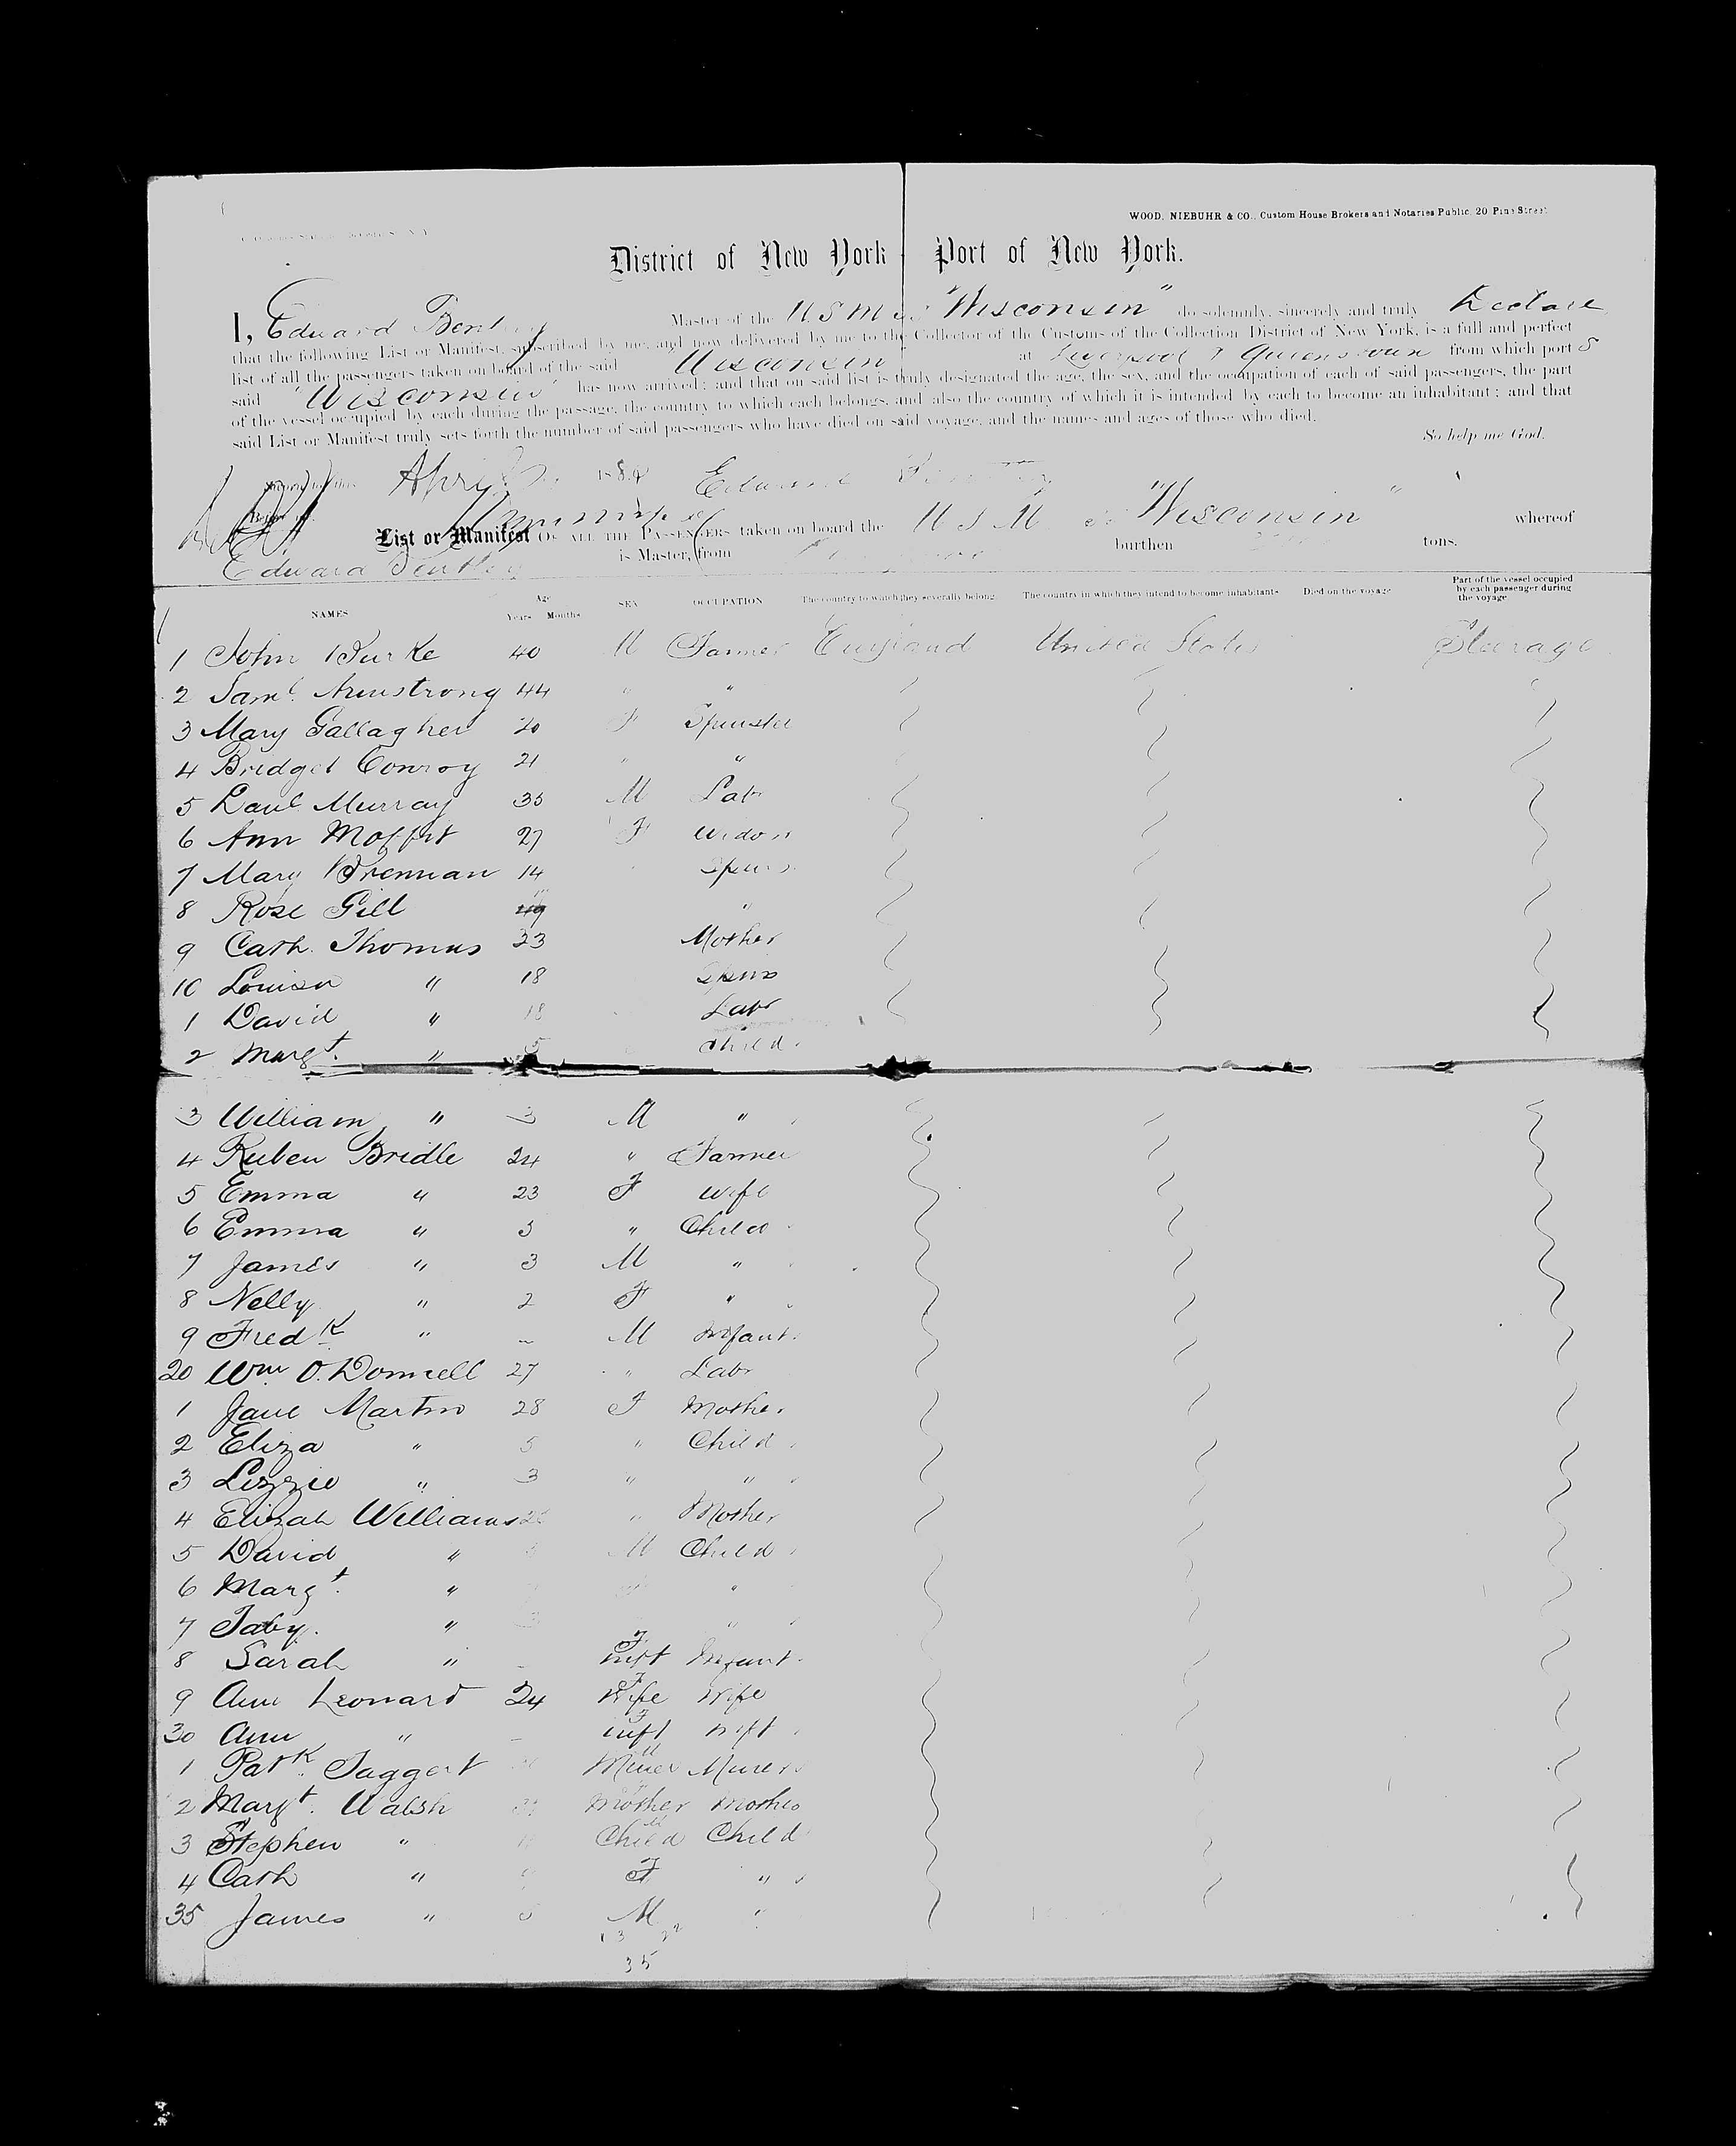 WOOD, NIEBUHR & CO., Custom House Brokers and Notaries Public, 20 Pine Street
District of New York - Port of New York.
I, Edward Bentley Master of the U S M S "Wisconsin" do solemnly, sincerely and truly Declare
that the following List or Manifest, subscribed by me, and now delivered by me to the Collector of the Customs of the Collection District of New York, is a full and perfect
list of all the passengers taken on board of the said "Wisconsin" at Liverpool & Queenstown from which port s
said "Wisconsin" has now arrived; and that on said list is truly designated the age, the sex, and the occupation of each of said passengers, the part
of the vessel occupied by each during the passage, the country to which each belongs, and also the country of which it is intended by each to become an inhabitant; and that
said List or Manifest truly sets forth the number of said passengers who have died on said voyage, and the names and ages of those who died.
So help me God.
April 188 Edward Bentley
List or Manifest OF ALL THE PASSENGERS taken on board the U S M S "Wisconsin" whereof
Edward Bentley is Master, from burthen tons.
NAMES Age Years Months SEX OCCUPATION The country to which they severally belong The country in which they intend to become inhabitants Died on the voyage Part of the vessel occupied by each passenger during the voyage
1 John Burke 40 M Farmer England United States Steerage
2 Saml. Armstrong 44 " "
3 Mary Gallagher 20 F Spinster
4 Bridget Conroy 21 " "
5 Danl Murray 35 M Labr
6 Ann Moffit 27 F Widow
7 Mary Brennan 14 Spins
8 Rose Gill "
9 Cath. Thomas 33 Mother
10 Louisa " 18 Spins
1 David " 18 Labr
2 Margt. " 5 Child
3 William " 3 M "
4 Ruben Bridle 24 " Farmer
5 Emma " 23 F Wife
6 Emma " 5 " Child
7 James " 3 M "
8 Nelly " 2 F "
9 Fredk " - M Infant
20 Wm O.Donnell 27 " Labr
1 Jane Martin 28 F Mother
2 Eliza " 5 " Child
3 Lizzie " 3 " "
4 Elizah Williams " Mother
5 David " M Child
6 Margt. " "
7 Taby. " "
8 Sarah " - F Inft Infant
9 Ann Leonard 24 F Wife Wife
30 Ann " - F Inft Inft
1 Patk. Taggert M Miner Miner
2 Margt. Walsh F Mother Mother
3 Stephen " M Child Child
4 Cath " F "
35 James " M "
13 22
35